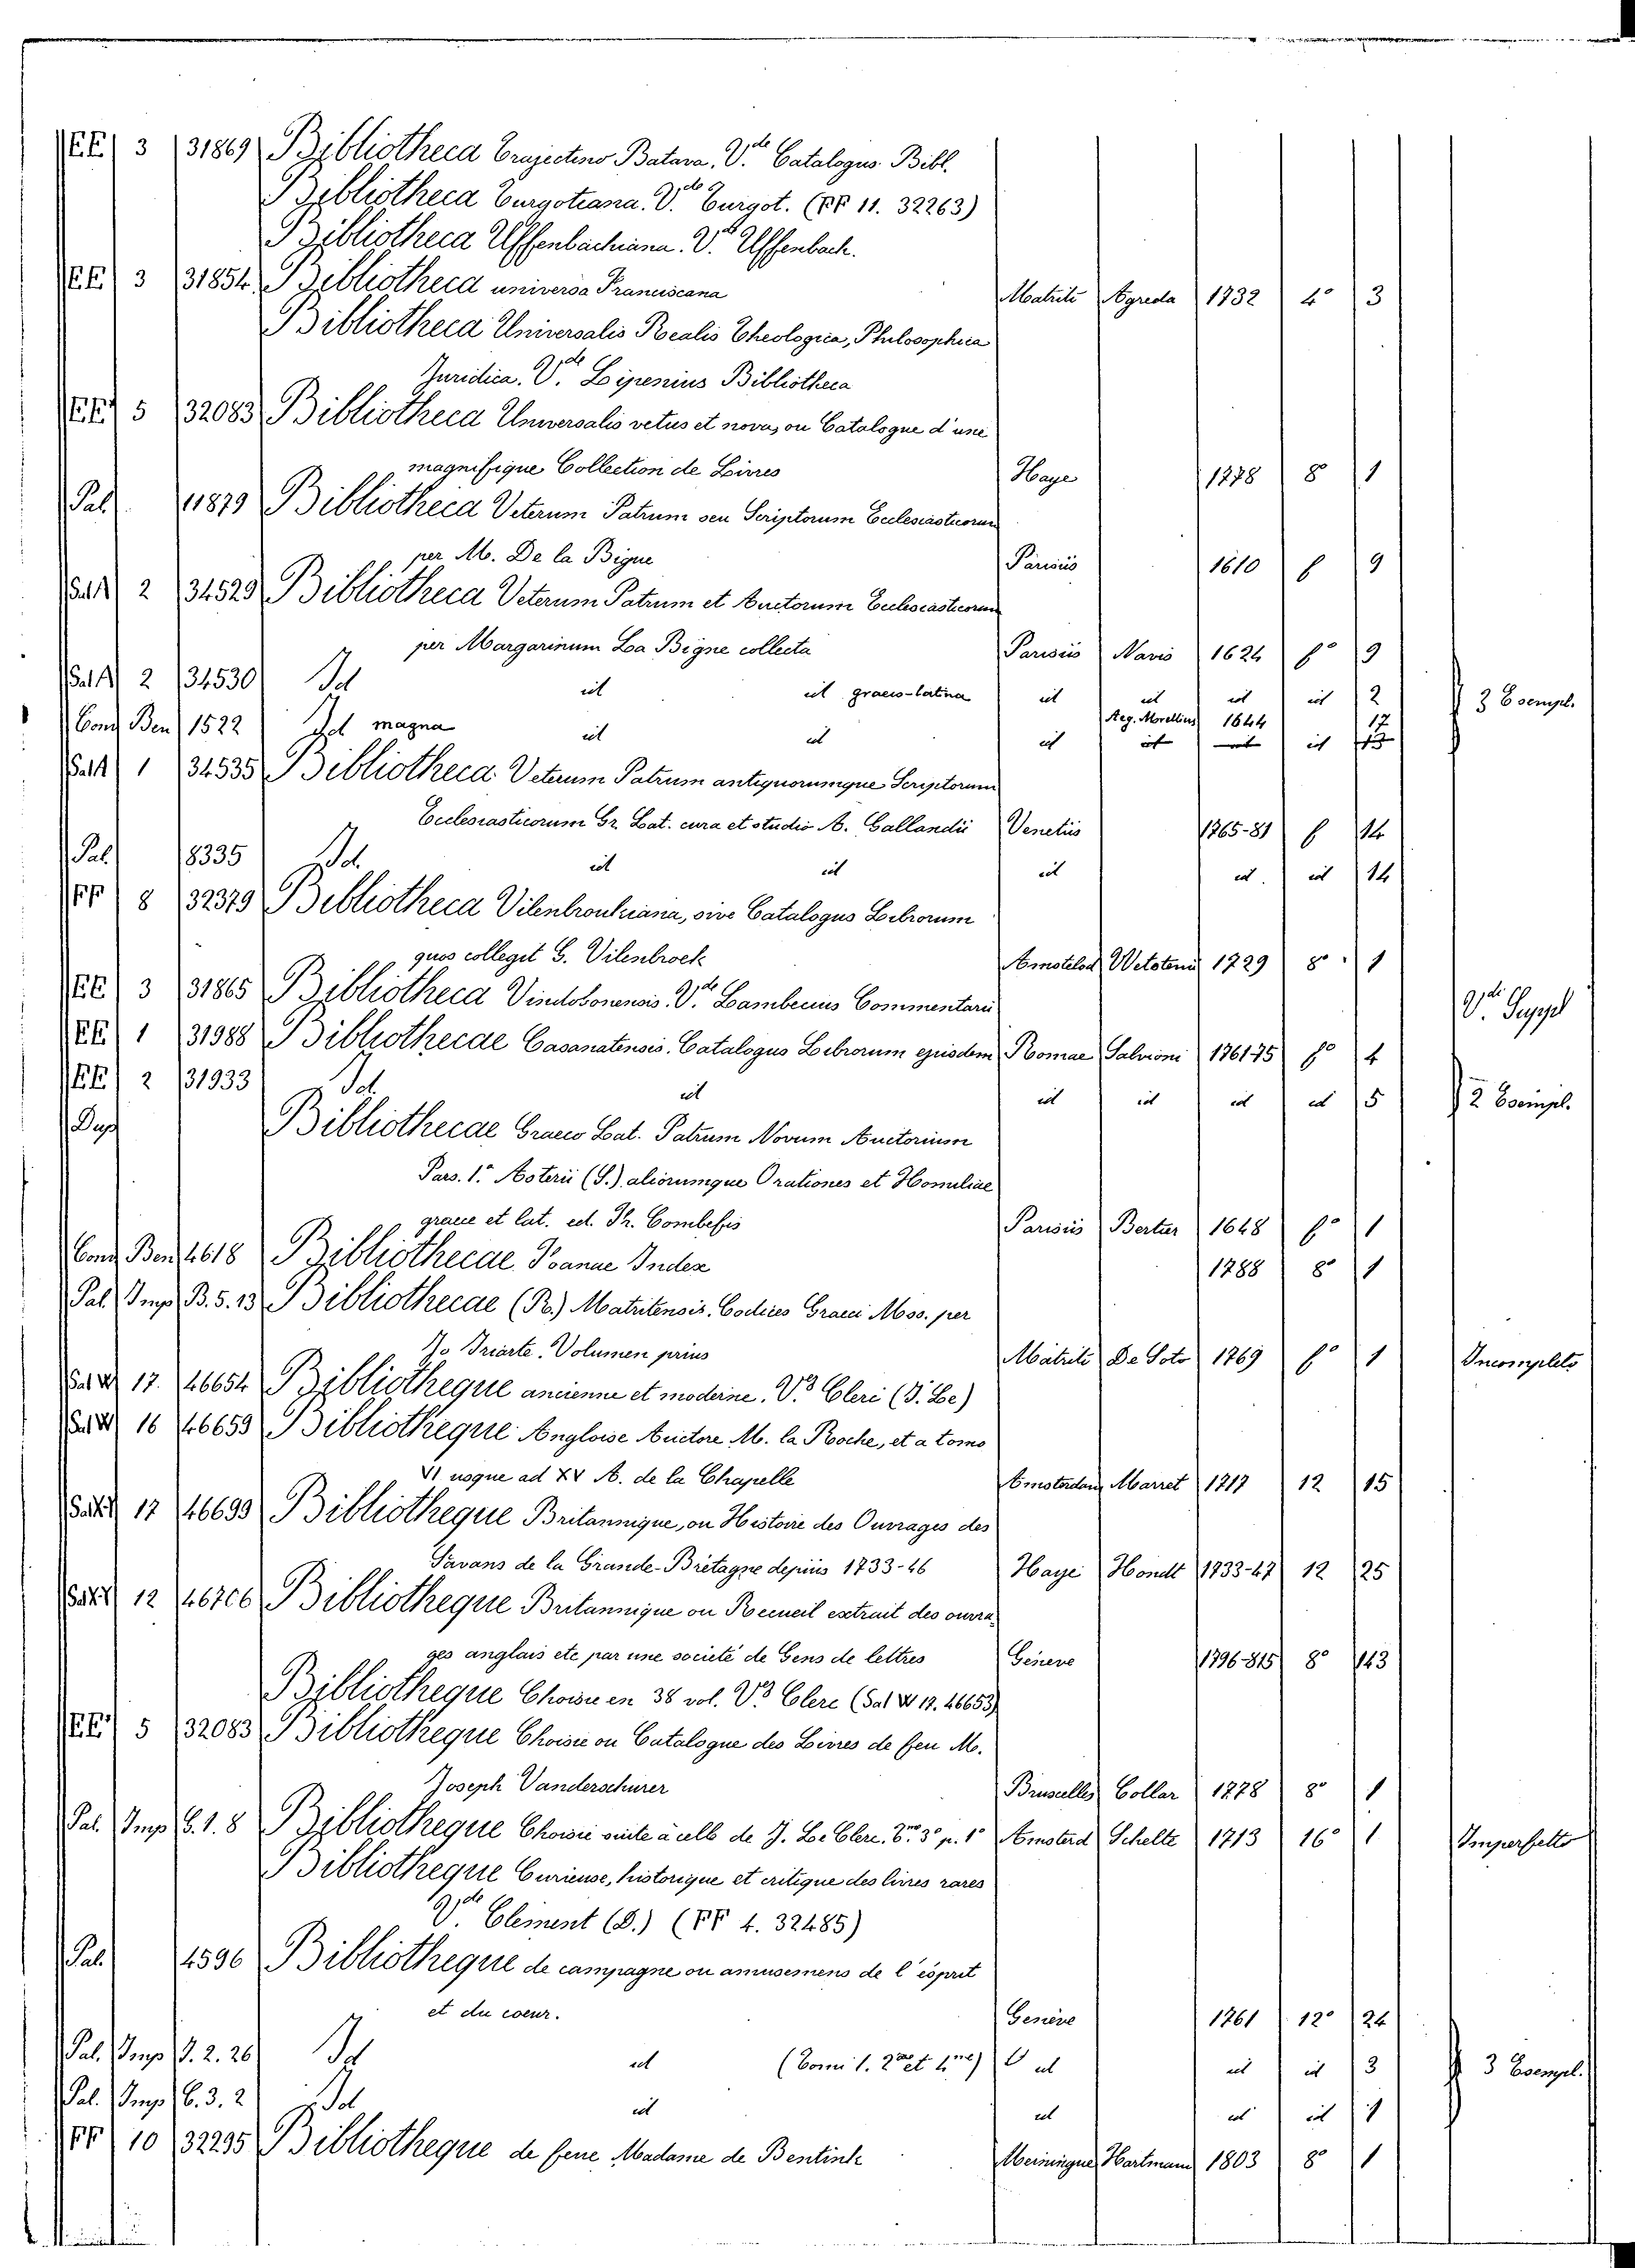 EE 3 31869 Bibliotheca Trajectino Batava. V.de Catalogus Bibl.
Bibliotheca Turgotiana. V.de Turgot. (FF 11. 32263)
Bibliotheca Uffenbachiana. V.de Uffenbach.
EE 3 31854 Bibliotheca universa Franciscana Matriti Agreda 1732 4º 3
Bibliotheca Universalis Realis Theologica, Philosophica
Juridica. V.de Lipenius Bibliotheca
EE 5 32083 Bibliotheca Universalis vetus et nova, ou Catalogue d'une
magnifique Collection de Livres Haye 1778 8º 1
Pal. 11879 Bibliotheca Veterum Patrum seu Scriptorum Ecclesiasticorum
per M. De la Bigne Parisiis 1610 fº 9
Sal A 2 34529 Bibliotheca Veterum Patrum et Auctorum Ecclesiasticorum
per Margarinum La Bigne collecta Parisiis Navis 1624 fº 9
Sal A 2 34530 Id id id graeco-latina id id id id 2 3 Esempl.
Cong Ben 1522 Id magna id id id Aeg. Morellius 1644 id 17
Sal A 1 34535 Bibliotheca Veterum Patrum antiquorumque Scriptorum
Ecclesiasticorum Gr. Lat. cura et studio A. Gallandii Venetiis 1765-81 fº 14
Pal. 8335 Id. id id id id id 14
FF 8 32379 Bibliotheca Vilenbrouckiana, sive Catalogus Librorum
quos collegit G. Vilenbrock Amstelod Wetstenii 1729 8º 1
EE 3 31865 Bibliotheca Vindobonensis. V.de Lambecius Commentarii V.di Suppl
EE 1 31988 Bibliothecae Casanatensis. Catalogus Librorum ejusdem Romae Salvioni 1761-75 fº 4
EE 2 31933 Id. id id id id id 5 2 Esempl.
Dup Bibliothecae Graeco Lat. Patrum Novum Auctorium
Pars. 1.ª Asterii (S.) aliorumque Orationes et Homiliae
graece et lat. ed. Fr. Combefis Parisiis Bertier 1648 fº 1
Cong Ben 4618 Bibliothecae Ioannae Index 1788 8º 1
Pal. Imp B. 5. 13 Bibliothecae (R.) Matritensis. Codices Graeci Mss. per
Jo Iriarte. Volumen prius Matriti De Soto 1769 fº 1 Incompleto
Sal W 17. 46654 Bibliotheque ancienne et moderne. V.di Clerc (J. Le)
Sal W 16 46659 Bibliotheque Angloise Auctore M. la Roche, et a tomo
VI usque ad XV A. de la Chapelle Amsterdam Marret 1717 12 15
17 46699 Bibliotheque Britannique, ou Histoire des Ouvrages des
Savans de la Grande-Bretagne depuis 1733-46 Haye Hondt 1733-47 12 25
12 46706 Bibliotheque Britannique ou Recueil extrait des ouvra
ges anglais etc par une societé de Gens de lettres Geneve 1796-815 8º 143
Bibliotheque Choisie en 38 vol. V.di Clerc (Sal W 17. 46653)
EE 5 32083 Bibliotheque Choisie ou Catalogue des Livres de feu M.
Joseph Vanderschurer Bruxelles Collar 1778 8º 1
Pal. Imp C. 1. 8 Bibliotheque Choisie suite à celle de J. Le Clerc. T.me 3º p. 1ª Amsterd Schelte 1713 16º 1 Imperfetto
Bibliotheque Curieuse, historique et critique des livres rares
V.de Clement (D.) (FF 4. 32485)
Pal. 4596 Bibliotheque de campagne ou amusemens de l'esprit
et du coeur. Genève 1761 12º 24
Pal. Imp J. 2. 26 Id id (Tomi 1. 2me et 4me) id id id 3 3 Esempl.
Pal. Imp C. 3. 2 Id id id id id 1
FF 10 32295 Bibliotheque de feue Madame de Bentink Meiningue Hartmann 1803 8º 1